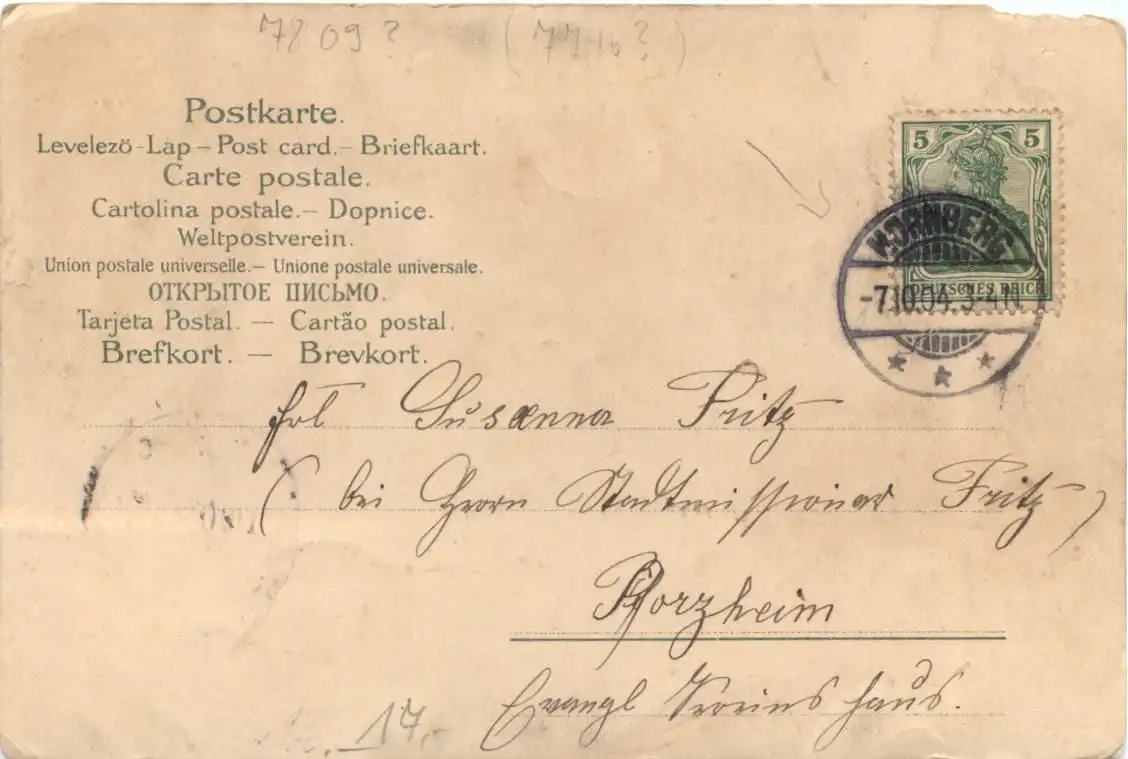 7809? (7716?)
Postkarte.
Levelezö-Lap – Post card. – Briefkaart.
Carte postale.
Cartolina postale. – Dopnice.
Weltpostverein.
Union postale universelle. – Unione postale universale.
ОТКРЫТОЕ ПИСЬМО.
Tarjeta Postal. — Cartão postal.
Brefkort. — Brevkort.
5 5
DEUTSCHES REICH
HORNBERG
-7.10.04. 3-4 N.
Frl Susanna Fritz
(bei Herrn Stadtmissionar Fritz)
Pforzheim
Evangl Vereinshaus.
17.-